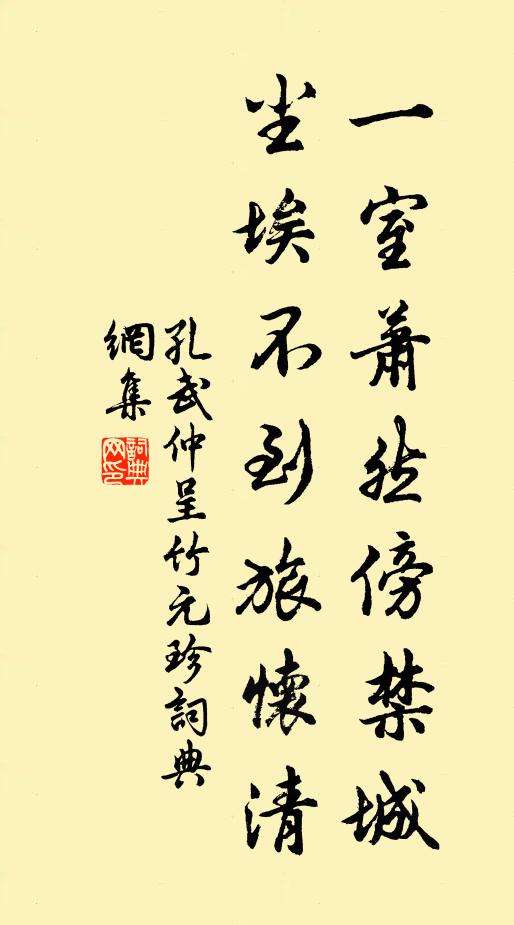 一室蕭然傍禁城
尘埃不到旅懷清
孔武仲呈竹元珍詞典
網集
詞典
网印